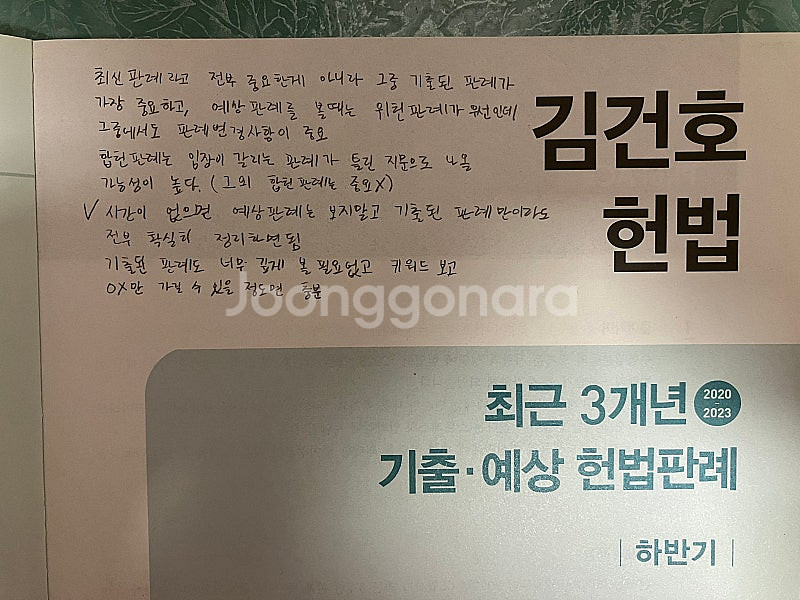 최신판례라고 전부 중요한게 아니라 그중 기출된 판례가
가장 중요하고, 예상판례를 볼때는 위헌판례가 우선인데
그중에서도 판례변경사항이 중요
합헌판례는 입장이 갈리는 판례가 틀린 지문으로 나올
가능성이 높다. (그외 합헌판례는 중요X)
V 시간이 없으면 예상판례는 보지말고 기출된 판례만이라도
전부 확실히 정리하면됨
기출된 판례도 너무 깊게 볼필요없고 키워드 보고
OX만 가릴 수 있을 정도면 충분
김건호
헌법
Joonggonara
최근 3개년 2020-2023
기출·예상 헌법판례
| 하반기 |